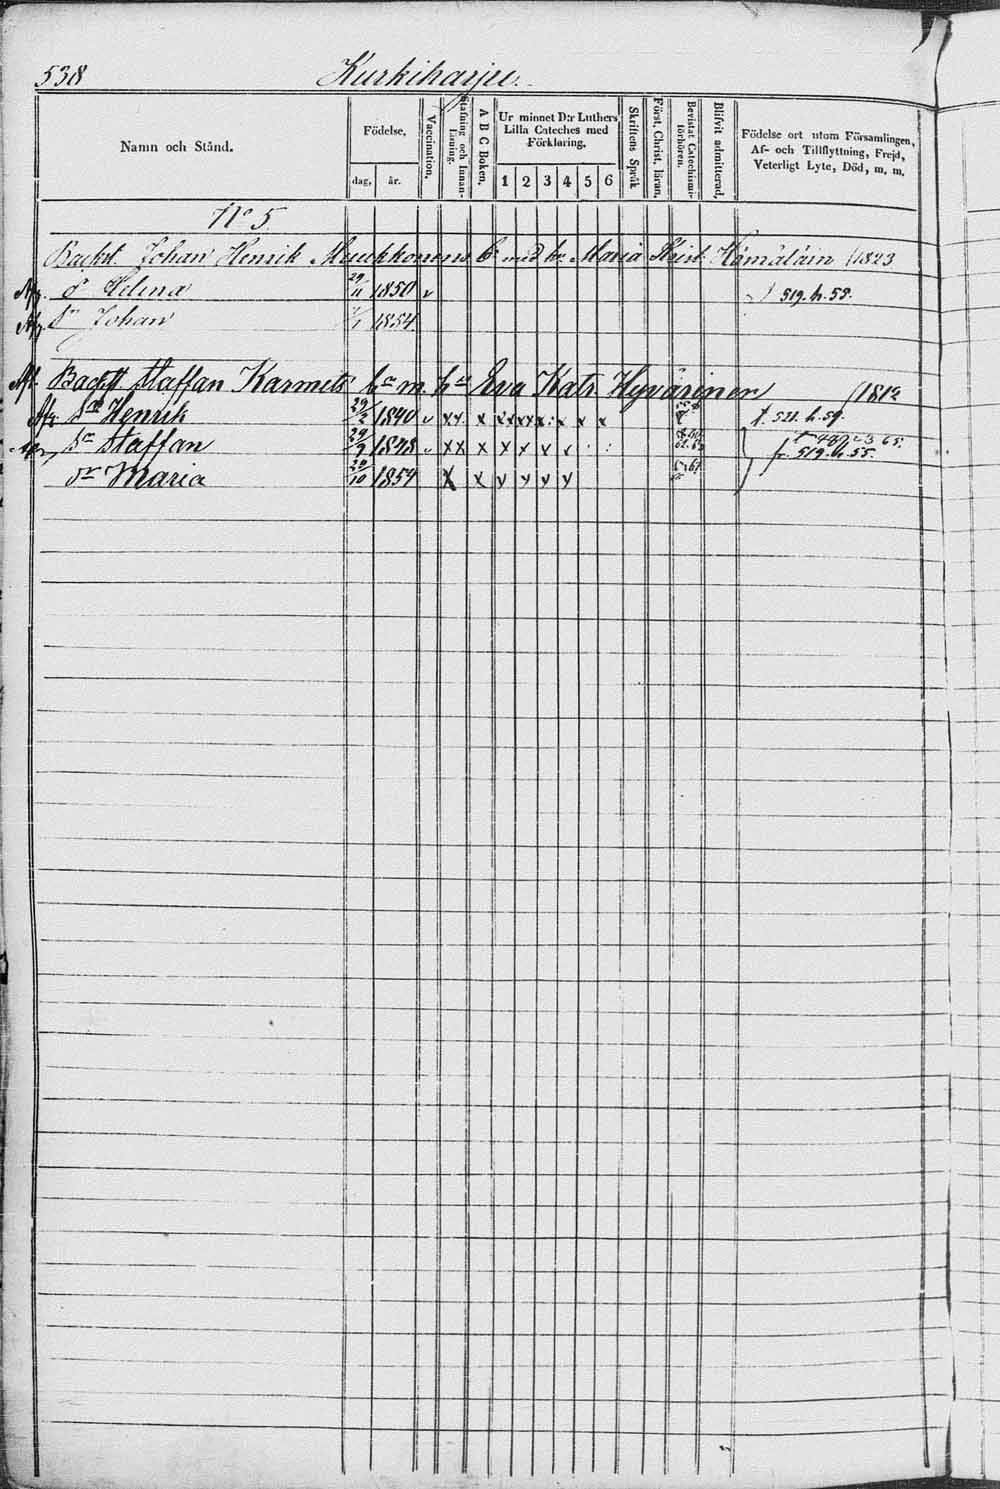 538 Kurkiharju.
Namn och Stånd.
Födelse,
dag, år.
Vaccination.
Stafning och Innanläsning.
A B C Boken.
Ur minnet D:r Luthers Lilla Cateches med Förklaring.
1 2 3 4 5 6
Skriftens Språk
Först. Christ. läran.
Bevistat Catechismiförhören.
Blifvit admitterad.
Födelse ort utom Församlingen, Af- och Tillflyttning, Frejd, Veterligt Lyte, Död, m. m.
No 5
Backst. Johan Henrik Muukkonens med Maria Hämäläin 1823
Helena 29/11 1850 v 519. h. 55.
Johan 1854
Backst Staffan Karmits m. Eva Katr. Hyvärinen 1812
Sn Henrik 29/2 1840 v x x x x x x x x x t. 521. h. 59.
Sn Staffan 29/9 1848 v x x x x x x v f. 519. h. 55.
dr Maria 20/10 1854 x x v v v v